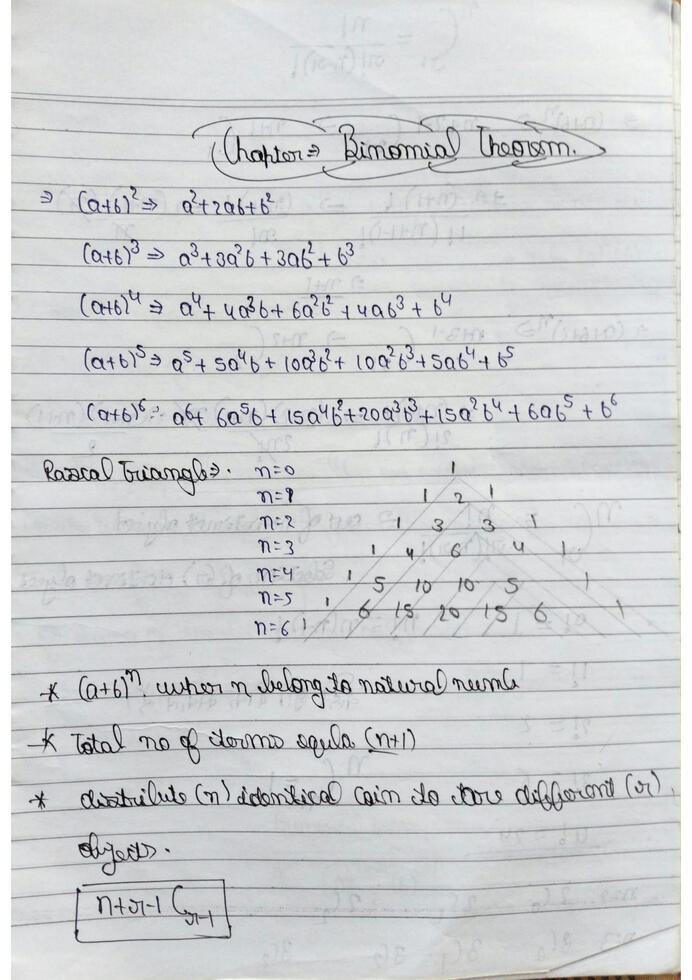 Chapter⇒ Binomial Theorem.
⇒ (a+b)² ⇒ a²+2ab+b²
(a+b)³ ⇒ a³+3a²b+3ab²+b³
(a+b)⁴ ⇒ a⁴+4a³b+6a²b²+4ab³+b⁴
(a+b)⁵ ⇒ a⁵+5a⁴b+10a³b²+10a²b³+5ab⁴+b⁵
(a+b)⁶ ⇒ a⁶+6a⁵b+15a⁴b²+20a³b³+15a²b⁴+6ab⁵+b⁶
Pascal Triangle⇒. n=0 1
n=1 1 2 1
n=2 1 3 3 1
n=3 1 4 6 4 1
n=4 1 5 10 10 5 1
n=5 1 6 15 20 15 6 1
n=6 1
* (a+b)ⁿ when n belong to natural numb
* Total no of terms equla (n+1)
* distribute (n) identical coin to different (r)
objects.
n+r-1 C r-1